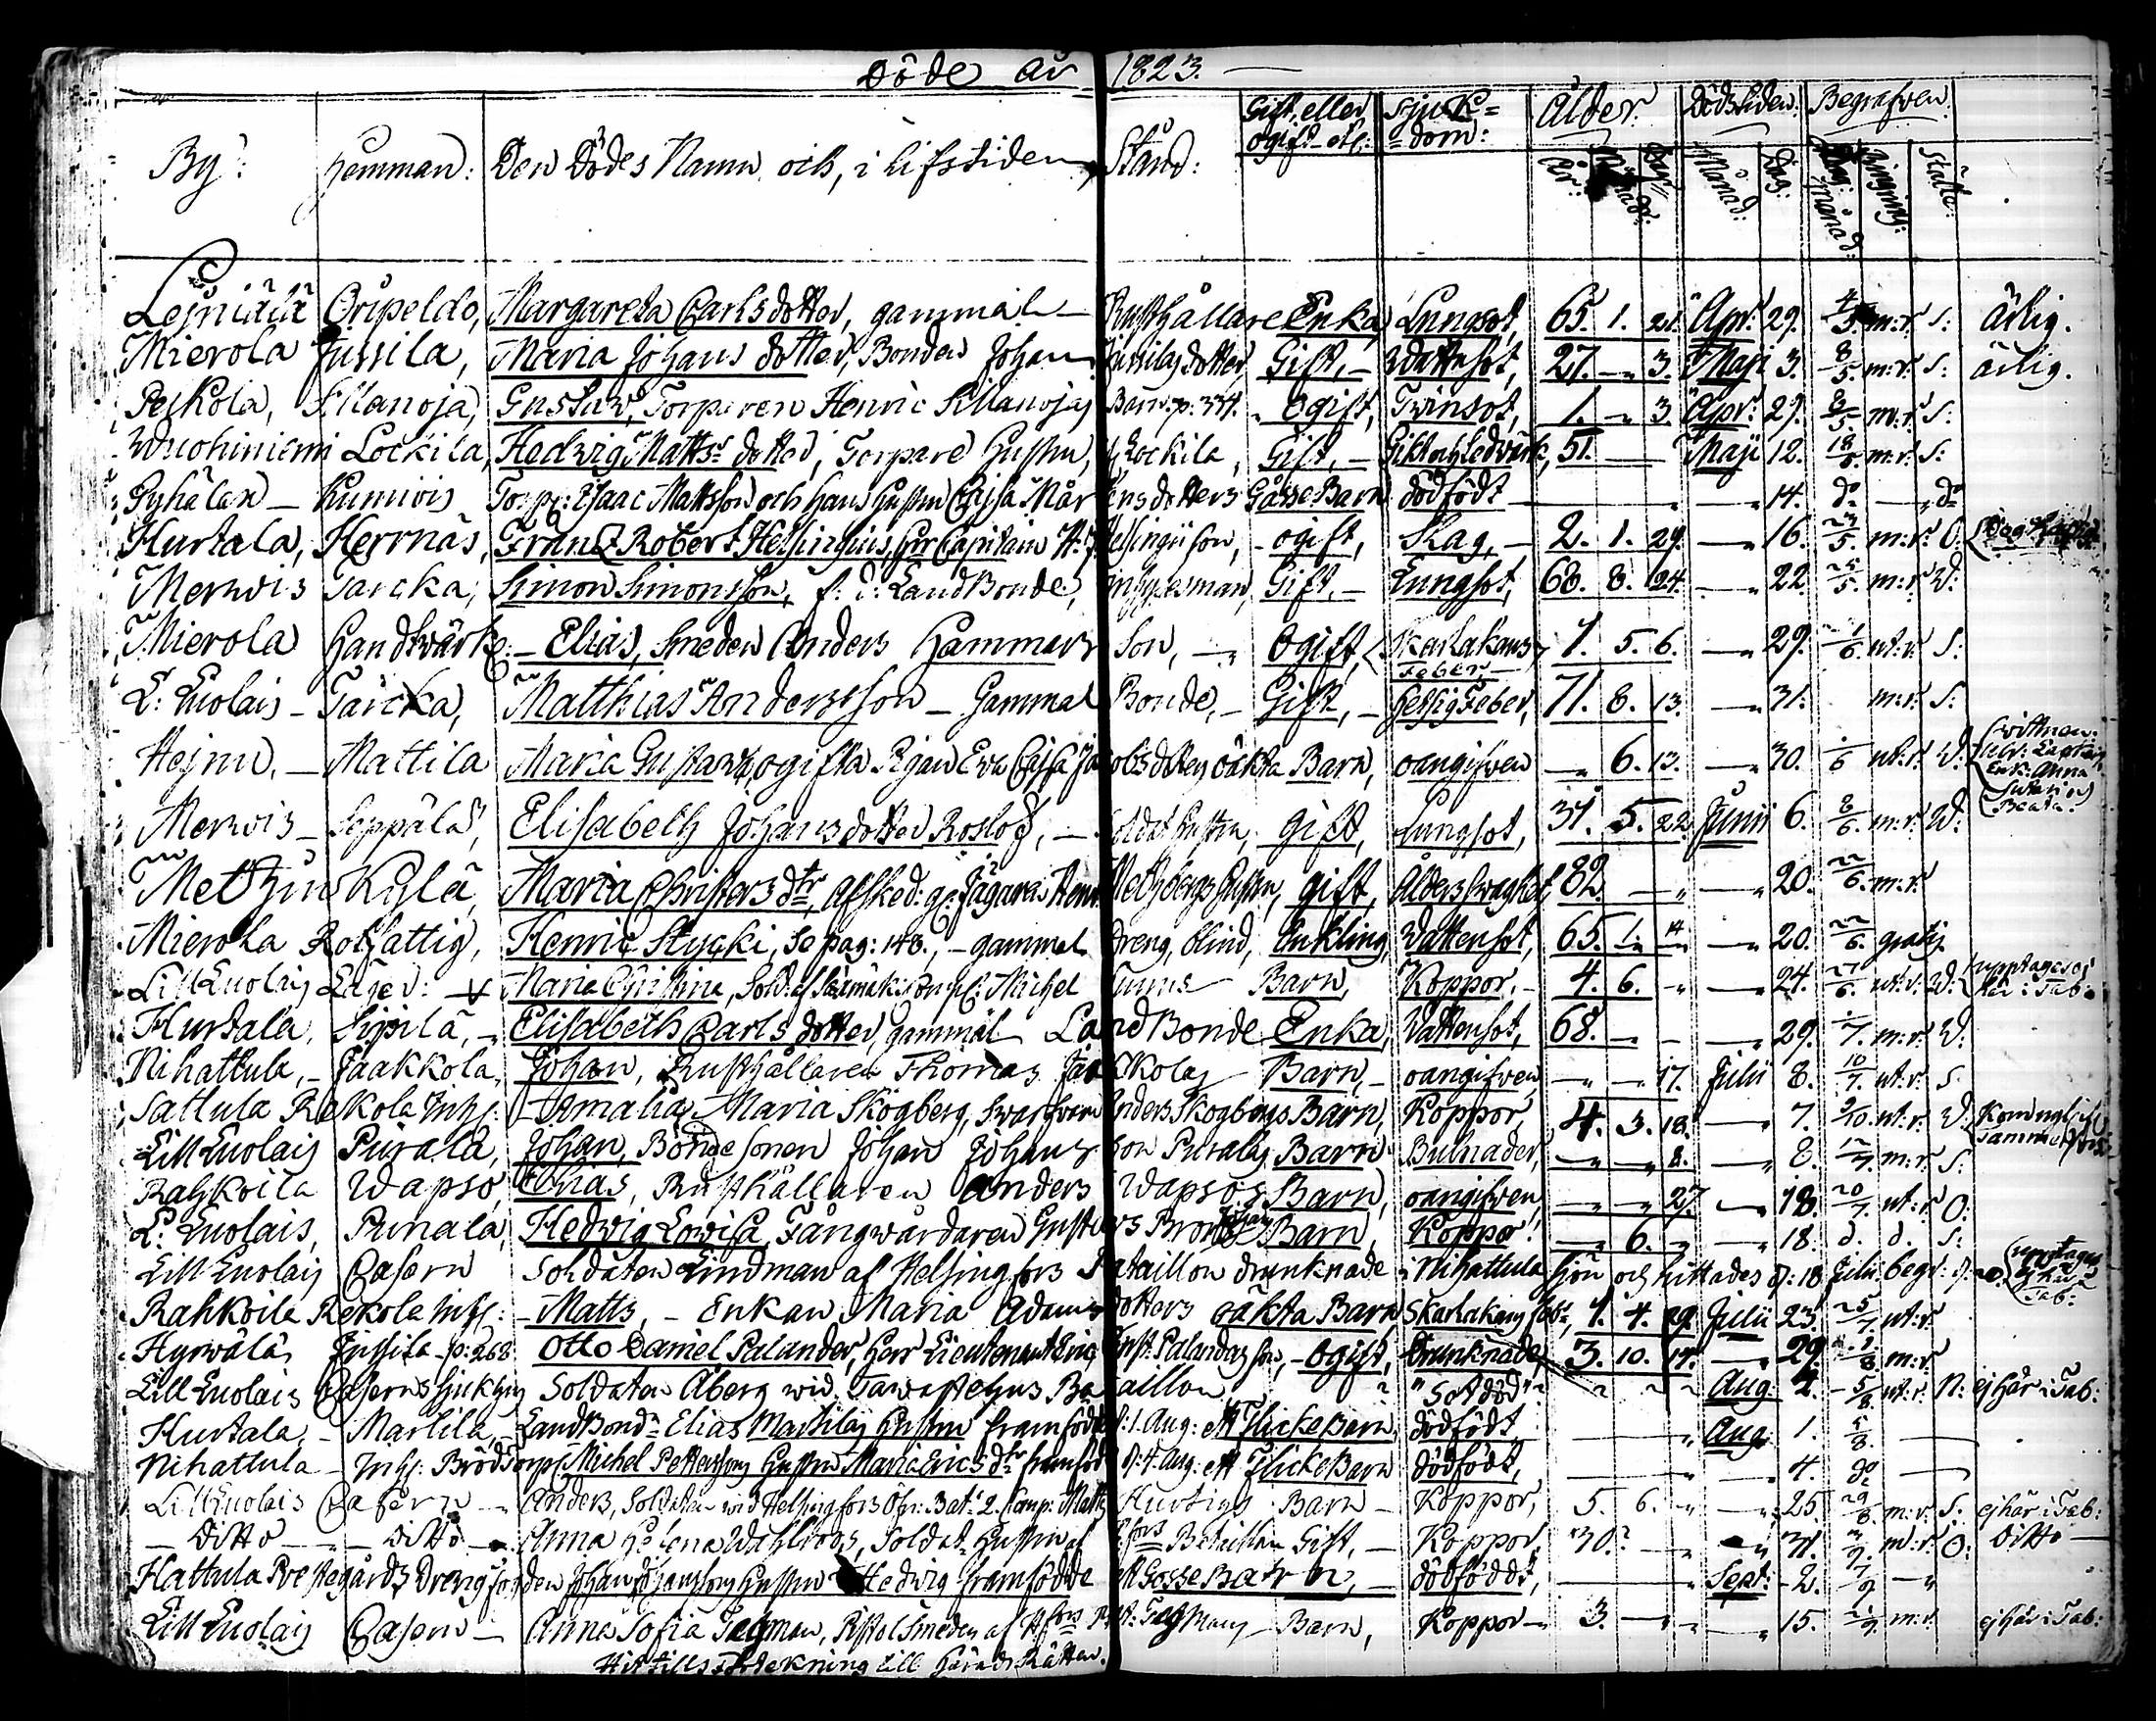 Döde år 1823.
By: Hemman: Den Dödes Namn och, i lifstiden, Stånd: Gift, eller ogift etc: Sjukdom: Ålder. Dödstiden: Begrafven.
År: Månad: Dag: Månad: Dag: Dag: månad: Ringning: Ställe:
Lejniälä Oripeldo, Margareta Carlsdotter, gammal Rusthållare Enka, Lungsot, 65. 1. 21. Apr: 29. 4/5 m:r. S: ärlig.
Mierola Jussila, Maria Johans dotter, Bonden Johan Jussilas dotter, Gift, Wattusot, 27. – 3. Maji 3. 8/5. m:r. S: ärlig.
Pejkola, Sillanoja, Gustav, Torparen Henric Sillanojas Barn. p: 334. Ogift, Twinsot, 1. – 3. Apr: 29. 8/5. m:r. S:
Wuohiniemi Lockila, Hedwig Matts dotter, Torpare Hustru, Lockila, Gift, – Gikt och ledvärk, 51. — Maji 12. 18/5. m:r. S:
Pyhälax — Kunnois Torp: Isaac Mattsson och Hans Hustru Cajsa Mårtensdotters Gosse Barn dödfödt — 14. do — do
Hurtala, Herrnäs, Frans Robert Helsingius, Herr Capitain H. Helsingii son, – ogift, Slag, – 2. 1. 29. — 16. 23/5. m:r. O.
Merwis Tarcka, Simon Simonsson, f. d. LandBonde, Gift. – Lungsot, 68. 8. 24. — 22. 25/5. m:r. W:
Mierola Handtvärk: – Elias, Smeden Anders Hammars Son, – Ogift, Skarlakans Feber, 1. 5. 6. — 29. 1/6. ut:r. S:
L: Luolais – Tarcka, Matthias Andersson – Gammal Bonde, – Gift, – Hetsig Feber, 71. 8. 13. — 31. m:r. S:
Hejnu. – Mattila Maria Gustava, ogifta Pigan Eva Cajsa Jacobsdotters oäkta Barn, oangifven — 6. 13. — 30. /6 ut:r. W: Enk: Anna Beata
Merwis – Seppälä, Elisabeth Johansdotter Roslöf, – Soldat Hustru, gift, Lungsot, 31. 5. 22. Junii 6. 8/6. m:r. W:
Metzänkylä, Maria Christersdtr, Afsked: Jägaren Henr. Metzbergs Hustru, gift, Ålders svaghet, 82. — 20. 22/6. m:r.
Mierola Rotfattig, Henric Stycki, Se pag: 148., – gammal Dreng, blind, Enkling, Wattensot, 65. 1. 14 — 20. 22/6. gratis
Lill Luolais Läger: Maria Christina, Sold: Michel Tunns Barn, Koppor, – 4. 6. — 24. 27/6. ut:r. W: upptages ej här i Tab:
Hurtala, Sipilä, – Elisabeth Carls dotter, gammal LandBonde Enka, Wattensot, 68. — 29. /7. m:r. W:
Nihattula, – Jaakkola, Johan, Rusthållaren Thomas Jaakkolas Barn, – oangifven — 17. Julii 8. 10/7. ut:r. S.
Sattula Rekola Inhs: – Amalia Maria Skogberg, Swarfvaren Anders Skogbergs Barn, Koppor, 4. 3. 18. — 7. 9/10. ut:r. W:
Lill Luolais Purala, Johan, Bondesonen Johan Johansson Puralas Barn. Bulnader, — 8. — 8. 12/7. m:r. S:
Rahkoila Wapso, Elias, Rusthållaren Anders Wapsos Barn, oangifven, — 27. — 18. 20/7. ut:r. O:
L: Luolais, Punala, Hedwig Lowisa, Fångwårdaren Gustavs Barn, Koppor. — 6. — 18. d. d. S:
Lill Luolais Casern Soldaten Lindman af Helsingfors Bataillon drunknade i Nihattula sjön och hittades d: 18 Julii begr: upptages ej här i Tab:
Rahkoila Rekola Inhs: – Matts, – Enkan Maria Adams dotters oäkta Barn Skarlakans feb:, 1. 4. 29. Julii 23. 25/7 ut:r.
Hyrwälä, Jussila – p: 268 Otto Daniel Palander, Herr Lieutenant Eric Palanders son, – Ogift, Drunknade, 3. 10. 14. — 29. /8. m:r.
Lill Luolais Caserns Sjukhus Soldaten Åberg wid Tawastehus Bataillon "Sotdöd" Aug: 2. 5/8. ut:r. N: ej här i Tab:
Hurtala, – Marlila, – LandBond. Elias Marlilas Hustru framfödde d: 1. Aug: ett FlickeBarn, dödfödt, — Aug. 1. 5/8. —
Nihattula – Inhs: Torp: Michel Pettersons Hustru Maria Ericsdtr framfödde d: 4. Aug: ett Flicke Barn dödfödt, — 4. do —
Lill Luolais Casern – Anders, Soldaten wid Helsingfors Bat: 2. Comp: Matts Hurtigs Barn – Koppor, 5. 6. — 25. 29/8. m:r. S: ej här i Tab:
– Ditto – – Ditto – Anna Helena Wahlroos, Soldat Hustru af H:fors Bataillon Gift, – Koppor, 30? — 31. 3/9. m:r. O: Ditto –
Hattula Prestegårds Dreng Johan Johanssons Hustru Hedwig framfödde ett Gosse Barn, – dödföddt, — Sept: 2. 7/9 —
Lill Luolais Casern – Anna Sofia Tagman, Pistol Smeden af H:fors Bat: Tagmans Barn, Koppor – 3. — 15. 21/9. m:r. ej här i Tab:
Hittills Förtekning till Härads Rätten.